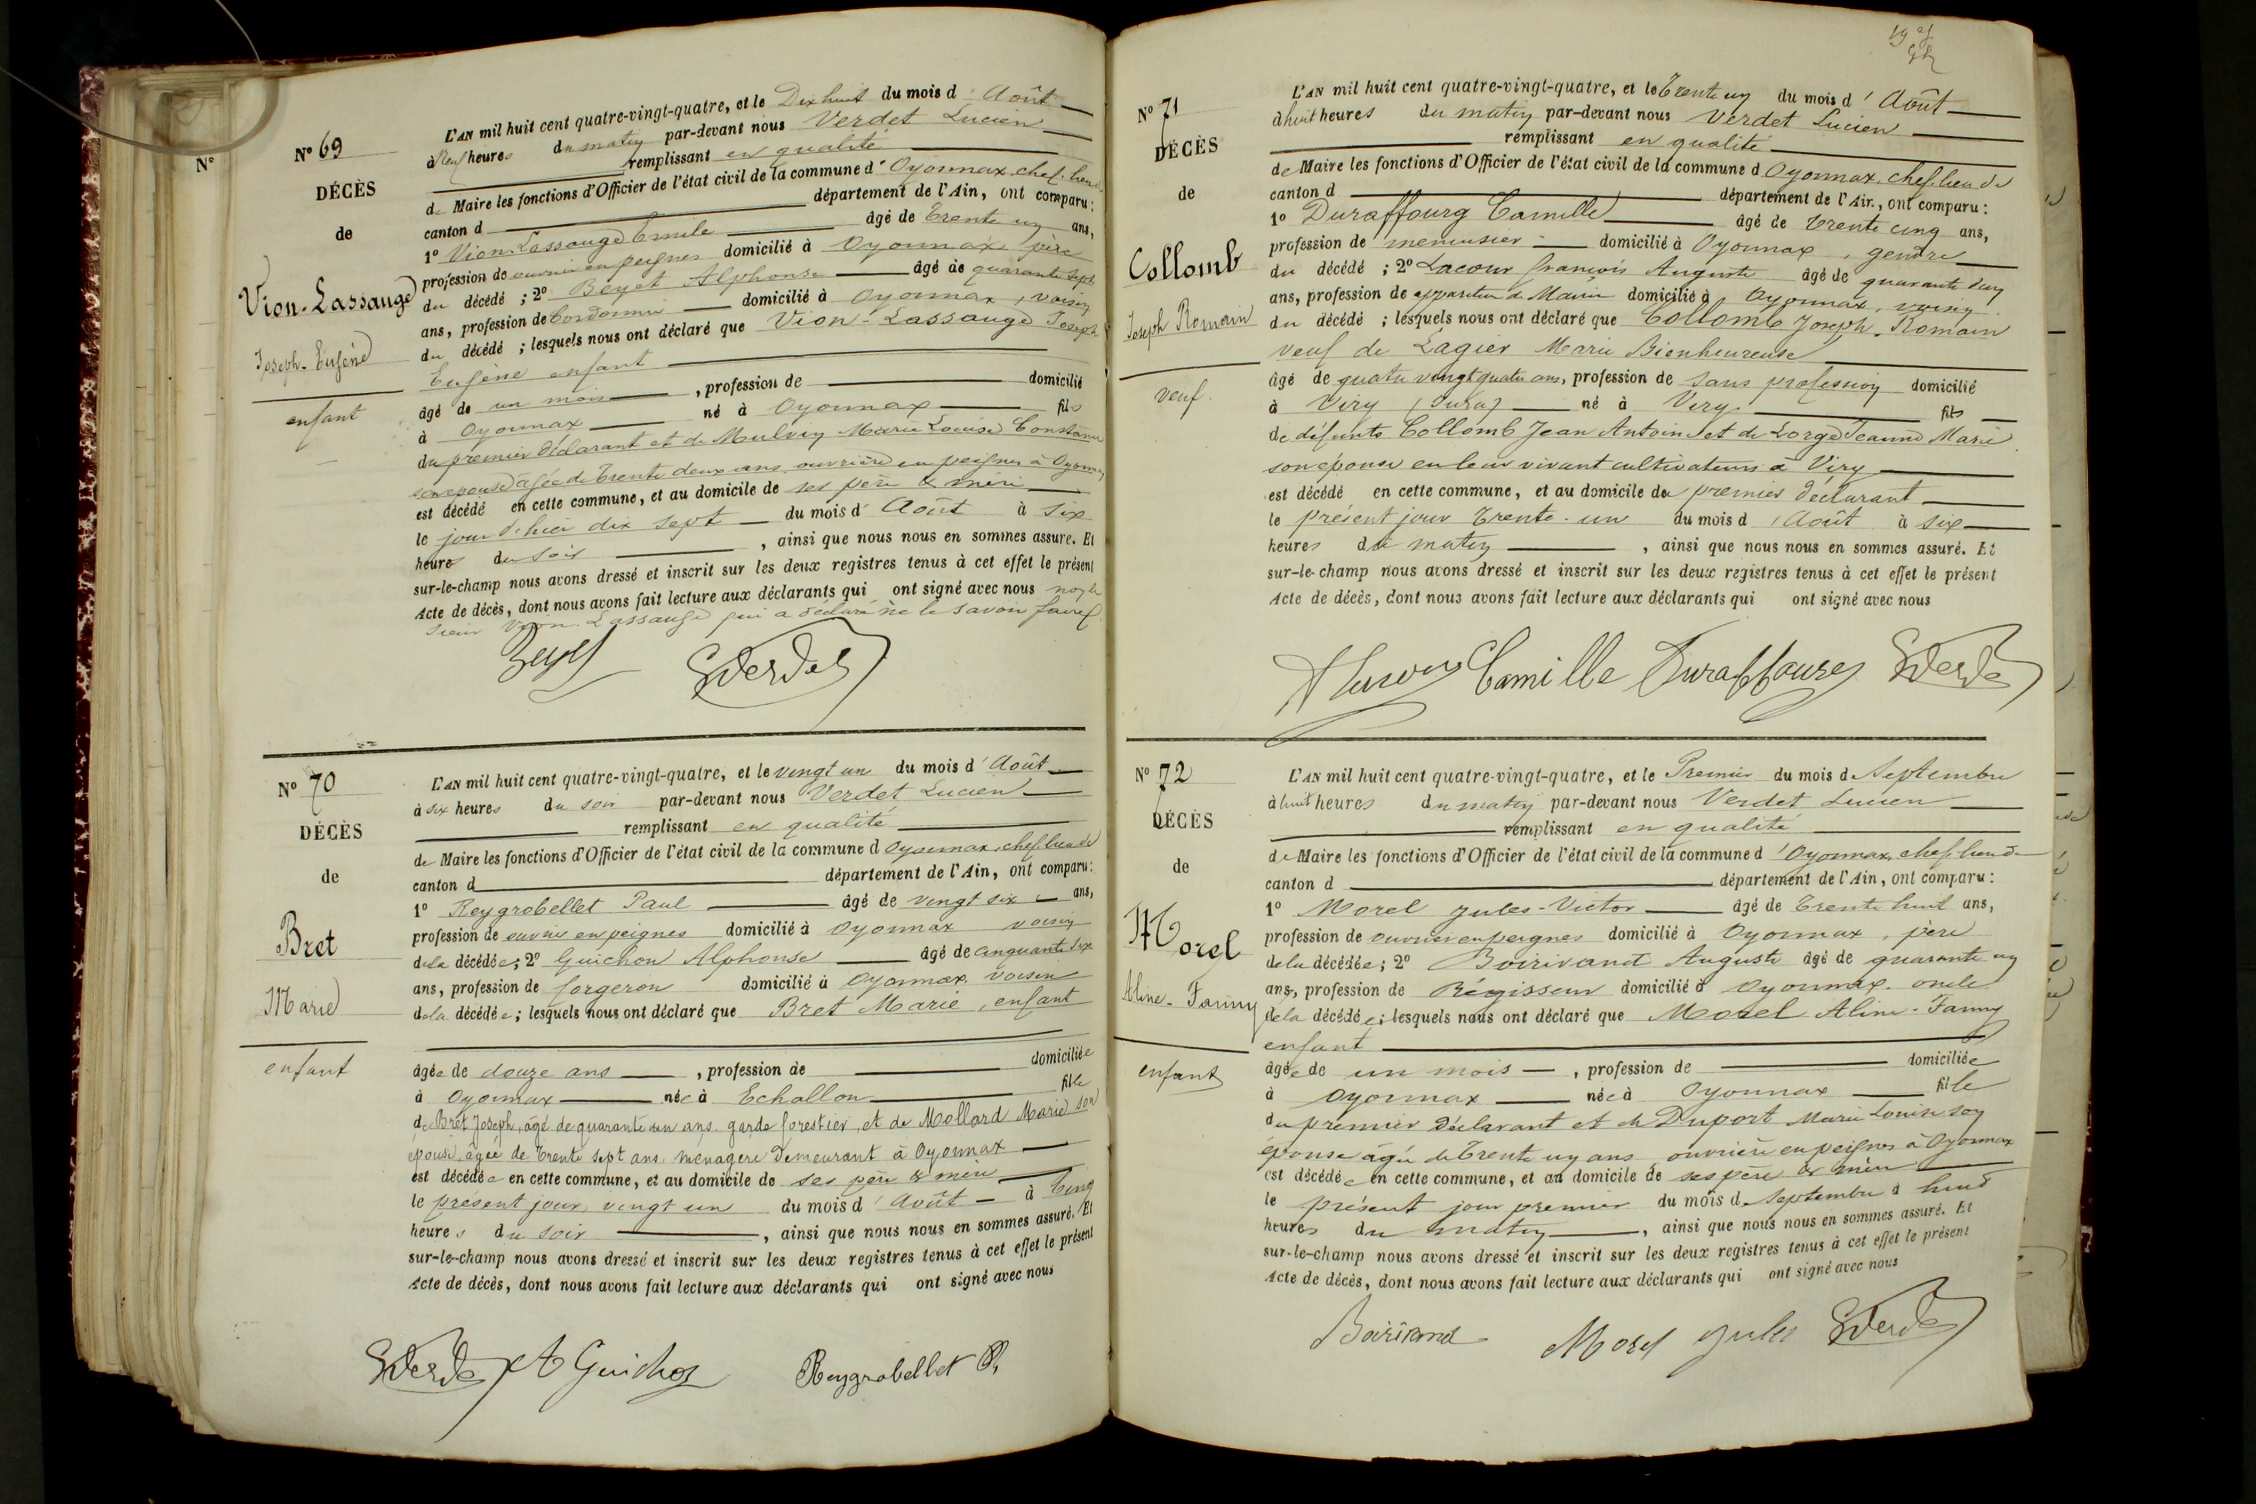 Nº
Nº 69
DÉCÈS
de
Vion-Lassauge
Joseph-Eugène
enfant
L'AN mil huit cent quatre-vingt-quatre, et le Dix huit du mois d'Août
à Neuf heures du matin par-devant nous Verdet Lucien
remplissant en qualité
de Maire les fonctions d'Officier de l'état civil de la commune d'Oyonnax, chef-lieu de
canton d département de l'Ain, ont comparu:
1º Vion-Lassauge Emile âgé de trente un ans,
profession de ouvrier en peignes domicilié à Oyonnax, père
du décédé; 2º Beyet Alphonse âgé de quarante sept
ans, profession de Cordonnier domicilié à Oyonnax, voisin
du décédé; lesquels nous ont déclaré que Vion-Lassauge Joseph
Eugène enfant
âgé de un mois, profession de domicilié
à Oyonnax né à Oyonnax fils
du premier déclarant et de Mulvin Marie Louise Constance
son épouse âgée de trente deux ans ouvrière en peignes à Oyonnax
est décédé en cette commune, et au domicile de ses père & mère
le jour d'hier dix sept du mois d'Août à six
heures du soir, ainsi que nous nous en sommes assuré. Et
sur-le-champ nous avons dressé et inscrit sur les deux registres tenus à cet effet le présent
Acte de décès, dont nous avons fait lecture aux déclarants qui ont signé avec nous non le
sieur Vion-Lassauge qui a déclaré ne le savoir faire
Beyet Verdet
Nº 70
DÉCÈS
de
Bret
Marie
enfant
L'AN mil huit cent quatre-vingt-quatre, et le vingt un du mois d'Août
à six heures du soir par-devant nous Verdet Lucien
remplissant en qualité
de Maire les fonctions d'Officier de l'état civil de la commune d Oyonnax, chef-lieu de
canton d département de l'Ain, ont comparu:
1º Reygrobellet Paul âgé de vingt six ans,
profession de ouvrier en peignes domicilié à Oyonnax voisin
de la décédée; 2º Guichon Alphonse âgé de cinquante six
ans, profession de forgeron domicilié à Oyonnax, voisin
de la décédée; lesquels nous ont déclaré que Bret Marie, enfant
âgée de douze ans, profession de domiciliée
à Oyonnax née à Echallon fille
de Bret Joseph, âgé de quarante un ans, garde forestier, et de Mollard Marie son
épouse, âgée de trente sept ans, ménagère demeurant à Oyonnax
est décédée en cette commune, et au domicile de ses père & mère
le présent jour, vingt un du mois d'Août à Cinq
heures du soir, ainsi que nous nous en sommes assuré. Et
sur-le-champ nous avons dressé et inscrit sur les deux registres tenus à cet effet le présent
Acte de décès, dont nous avons fait lecture aux déclarants qui ont signé avec nous
Verdet A Guichon Reygrobellet P.
Nº 71
DÉCÈS
de
Collomb
Joseph Romain
veuf.
L'AN mil huit cent quatre-vingt-quatre, et le Trente un du mois d'Août
à huit heures du matin par-devant nous Verdet Lucien
remplissant en qualité
de Maire les fonctions d'Officier de l'état civil de la commune d Oyonnax, chef-lieu de
canton d département de l'Ain, ont comparu:
1º Duraffourg Camille âgé de trente cinq ans,
profession de menuisier domicilié à Oyonnax, gendre
du décédé; 2º Lacour François Auguste âgé de quarante cinq
ans, profession de appariteur de Mairie domicilié à Oyonnax, voisin
du décédé; lesquels nous ont déclaré que Collomb Joseph-Romain
veuf de Lagier Marie Bienheureuse
âgé de quatre vingt quatre ans, profession de sans profession domicilié
à Viry (Jura) né à Viry fils
de défunts Collomb Jean Antoine et de Lorge Jeanne Marie
son épouse en leur vivant cultivateurs à Viry
est décédé en cette commune, et au domicile du premier déclarant
le présent jour trente-un du mois d'Août à six
heures du matin, ainsi que nous nous en sommes assuré. Et
sur-le-champ nous avons dressé et inscrit sur les deux registres tenus à cet effet le présent
Acte de décès, dont nous avons fait lecture aux déclarants qui ont signé avec nous
Camille Duraffourg Verdet
Nº 72
DÉCÈS
de
Morel
Aline-Fanny
enfant
L'AN mil huit cent quatre-vingt-quatre, et le Premier du mois de Septembre
à huit heures du matin par-devant nous Verdet Lucien
remplissant en qualité
de Maire les fonctions d'Officier de l'état civil de la commune d'Oyonnax, chef-lieu de
canton d département de l'Ain, ont comparu:
1º Morel Jules-Victor âgé de trente huit ans,
profession de ouvrier en peignes domicilié à Oyonnax, père
de la décédée; 2º Boirivand Auguste âgé de quarante un
ans, profession de Régisseur domicilié à Oyonnax, oncle
de la décédée; lesquels nous ont déclaré que Morel Aline-Fanny
enfant
âgée de un mois, profession de domiciliée
à Oyonnax née à Oyonnax fille
du premier déclarant et de Duport Marie Louise son
épouse âgée de trente un ans ouvrière en peignes à Oyonnax
est décédée en cette commune, et au domicile de ses père & mère
le présent jour premier du mois de Septembre à huit
heures du matin, ainsi que nous nous en sommes assuré. Et
sur-le-champ nous avons dressé et inscrit sur les deux registres tenus à cet effet le présent
Acte de décès, dont nous avons fait lecture aux déclarants qui ont signé avec nous
Boirivand Morel Jules Verdet